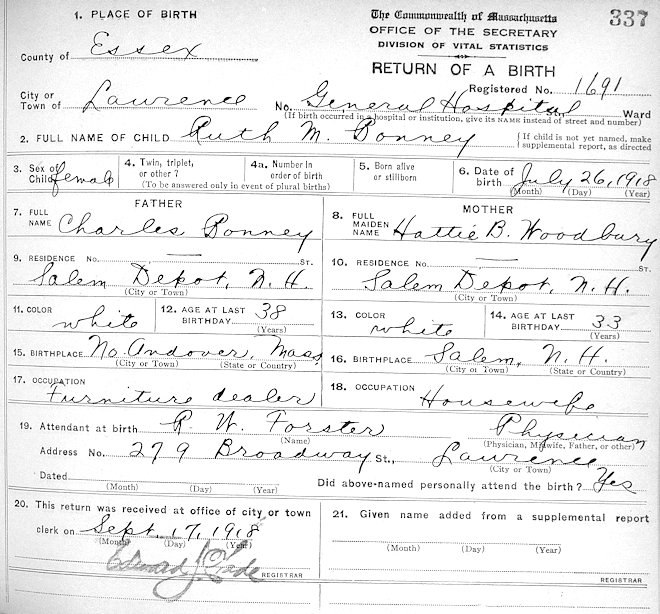 1. PLACE OF BIRTH
The Commonwealth of Massachusetts
337
OFFICE OF THE SECRETARY
DIVISION OF VITAL STATISTICS
RETURN OF A BIRTH
County of Essex
Registered No. 1691
City or Town of Lawrence No. General Hospital St., Ward
(If birth occurred in a hospital or institution, give its NAME instead of street and number)
2. FULL NAME OF CHILD Ruth M. Bonney
{ If child is not yet named, make supplemental report, as directed
3. Sex of Child female
4. Twin, triplet, or other ?
4a. Number in order of birth
(To be answered only in event of plural births)
5. Born alive or stillborn
6. Date of birth July 26, 1918
(Month) (Day) (Year)
FATHER
7. FULL NAME Charles Bonney
MOTHER
8. FULL MAIDEN NAME Hattie B. Woodbury
9. RESIDENCE No. St.
Salem Depot, N. H.
(City or Town)
10. RESIDENCE No. St.
Salem Depot, N. H.
(City or Town)
11. COLOR white
12. AGE AT LAST BIRTHDAY 38
(Years)
13. COLOR white
14. AGE AT LAST BIRTHDAY 33
(Years)
15. BIRTHPLACE No. Andover, Mass
(City or Town) (State or Country)
16. BIRTHPLACE Salem, N. H.
(City or Town) (State or Country)
17. OCCUPATION Furniture dealer
18. OCCUPATION Housewife
19. Attendant at birth R. W. Forster Physician
(Name) (Physician, Midwife, Father, or other)
Address No. 279 Broadway St., Lawrence
(City or Town)
Dated
(Month) (Day) (Year)
Did above-named personally attend the birth ? Yes
20. This return was received at office of city or town
clerk on Sept. 17, 1918
(Month) (Day) (Year)
REGISTRAR
21. Given name added from a supplemental report
(Month) (Day) (Year)
REGISTRAR